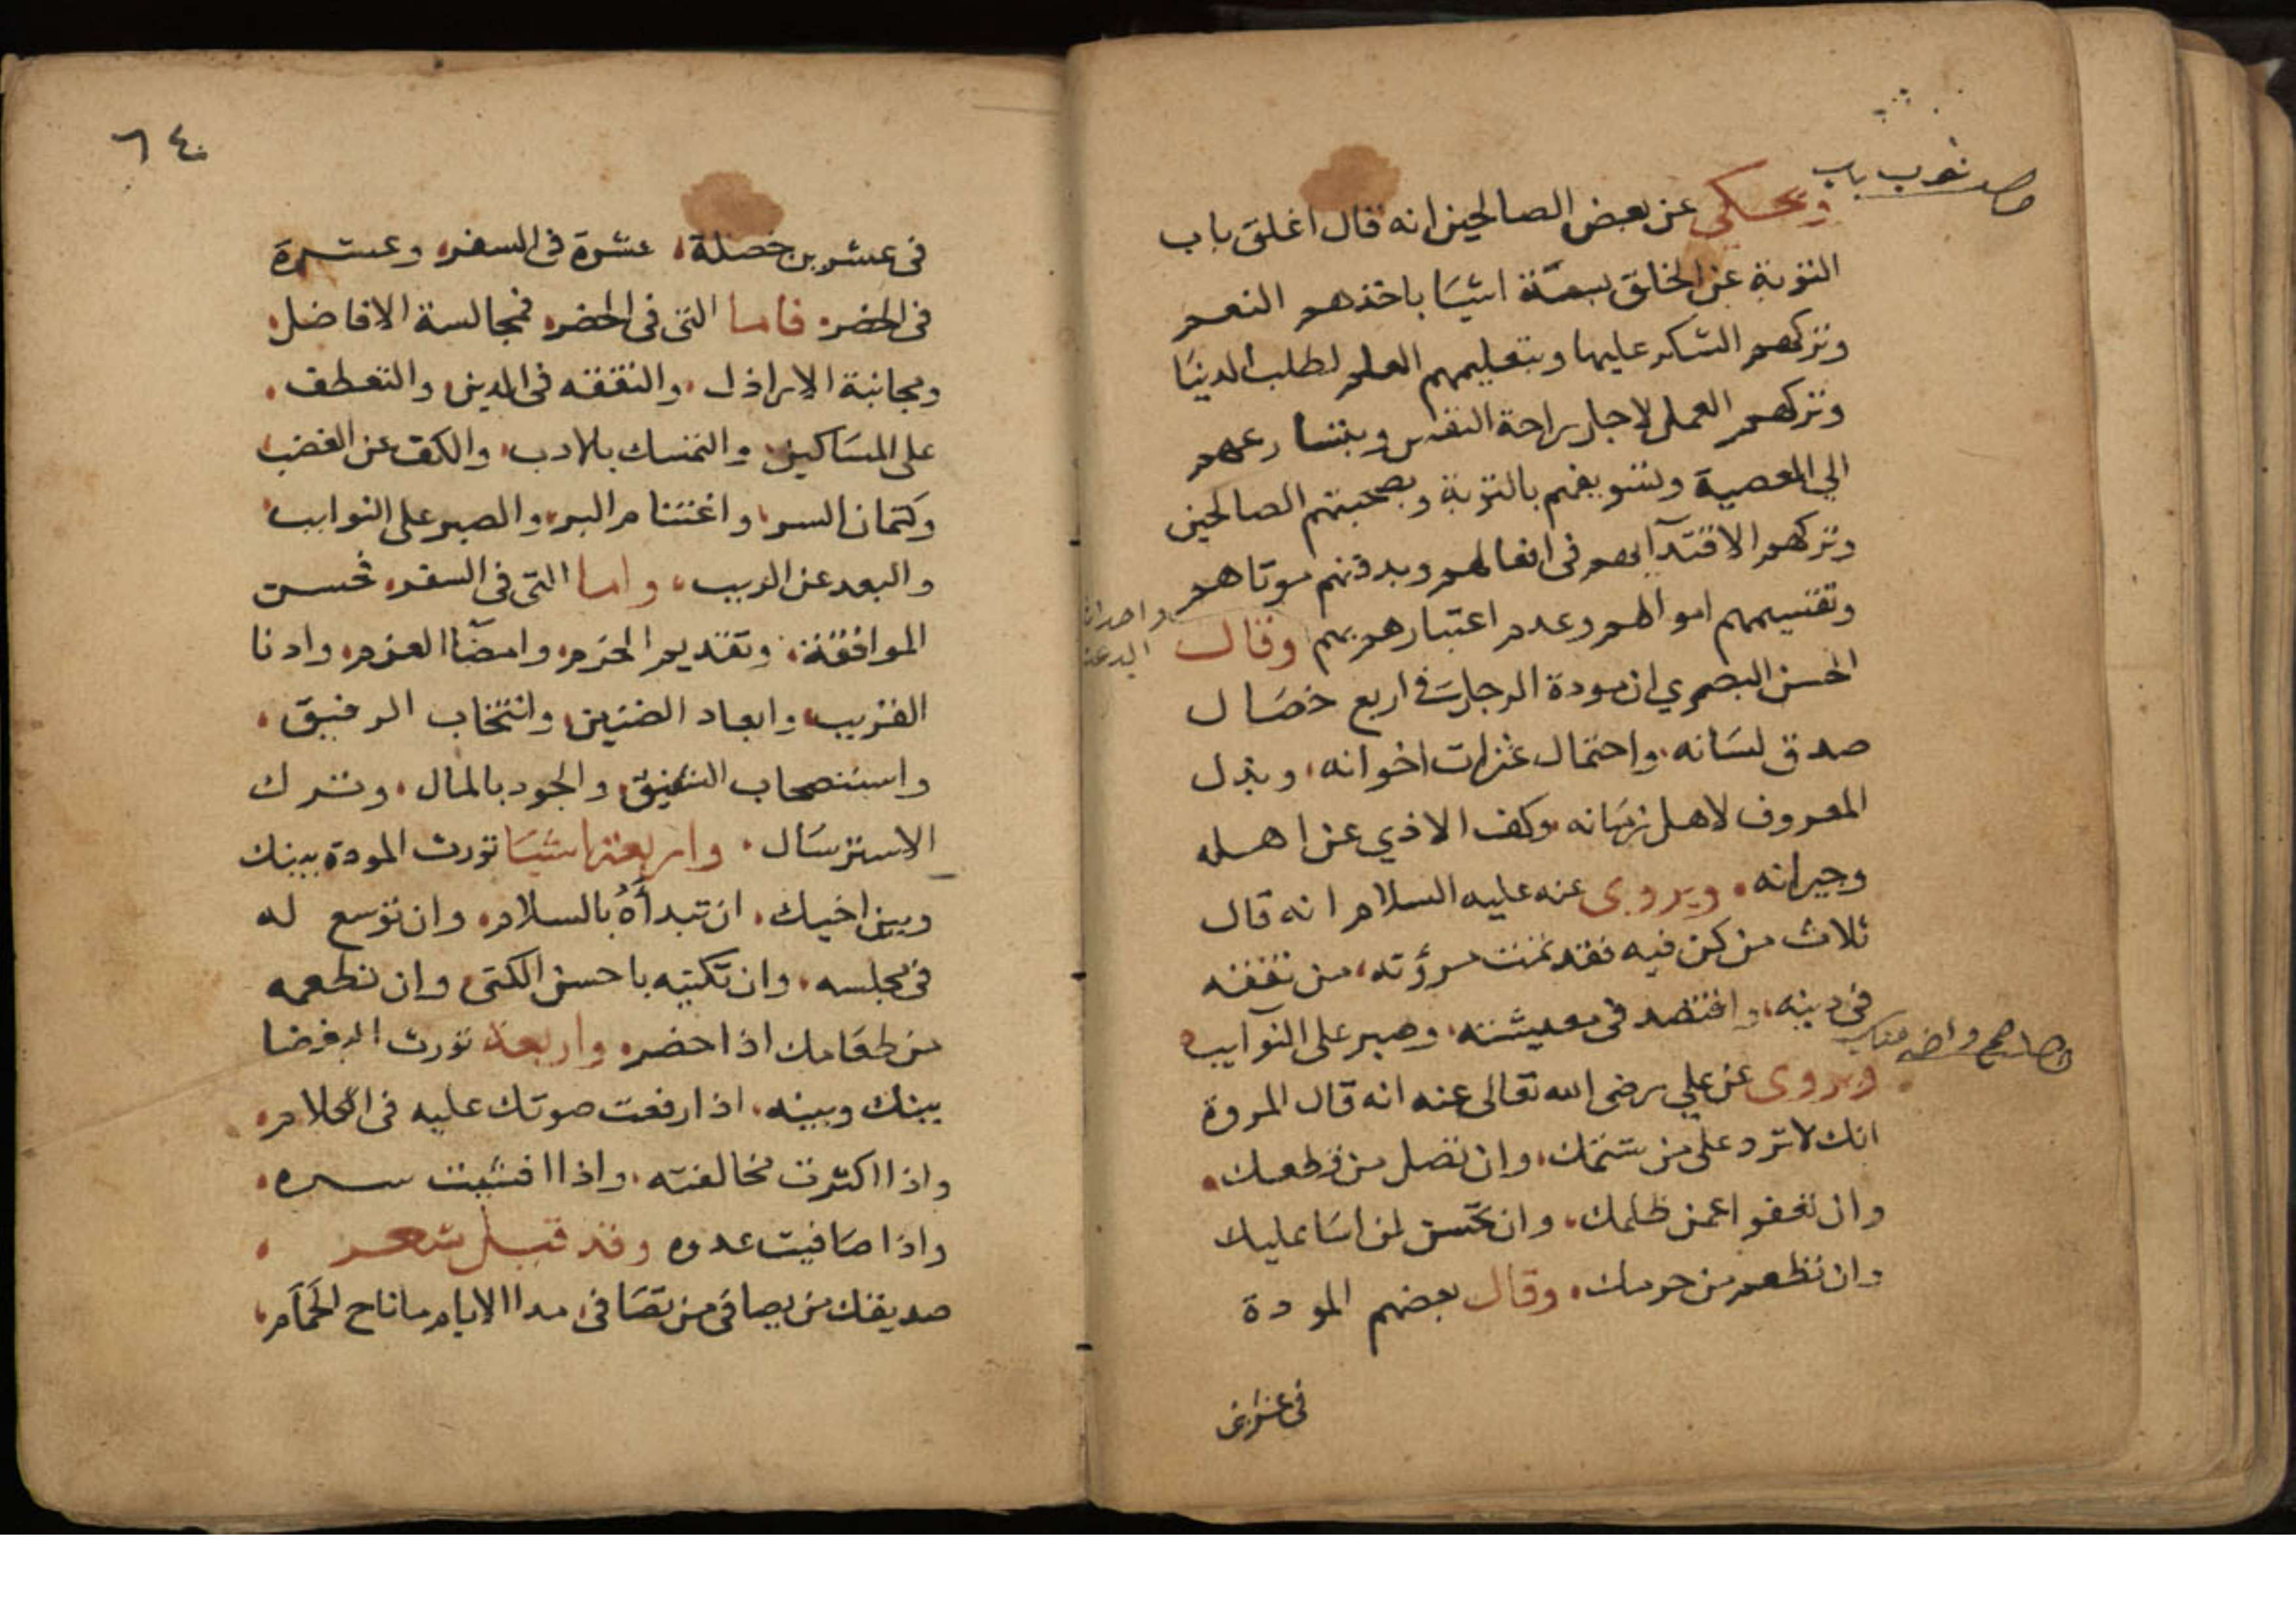 ويحكي عن بعض الصالحين انه قال اغلق باب
التوبة عن الخلق بستة اشيا باخذهم النعم
وتركهم الشكر عليها وبتعليمهم العلم لطلب الدنيا
وتركهم العمل لاجل راحة النفس وبتسارعهم
الي المعصية وتسويفهم بالتوبة وبصحبتهم الصالحين
وتركهم الاقتدآ بهم في افعالهم وبدفنهم موتاهم
وتقسيمهم اموالهم وعدم اعتبارهم بهم وقال
الحسن البصري ان مودة الرجل في اربع خصال
صدق لسانه، واحتمال عثرات اخوانه، وبذل
المعروف لاهل زمانه، وكف الاذي عن اهله
وجيرانه، ويروى عنه عليه السلام انه قال
ثلاث من كن فيه فقد تمت مرؤته، من تفقه
في دينه، واقتصد في معيشته، وصبر على النوآيب
ويروى عن علي رضى الله تعالى عنه انه قال المروة
انك لا ترد على من شتمك، وان تصل من قطعك،
وان تعفوا عمن ظلمك، وان تحسن لمن اسا عليك
وان تطعم من حرمك، وقال بعضهم المودة
في عشرين
٦٤
في عشرين خصلة، عشرة في السفر، وعشرة
في الحضر، فاما التي في الحضر، فمجالسة الافاضل،
ومجانبة الاراذل، والتفقه في الدين، والتعطف،
على المساكين، والتمسك بالادب، والكف عن الغضب،
وكتمان السر، واغتنام البر، والصبر على النوايب،
والبعد عن الريب، واما التي في السفر، فحسن
الموافقة، وتقديم الحزم، وامضآ العزم، وادنا
القريب، وابعاد الضنين، وانتخاب الرفيق،
واستصحاب الشفيق، والجود بالمال، وترك
الاسترسال، واربعة اشيا تورث المودة بينك
وبين اخيك، ان تبدأهُ بالسلام، وان توسع له
في مجلسه، وان تكنيه باحسن الكنى، وان تطعمه
من طعامك اذا حضر، واربعة تورث البغضا
بينك وبينه، اذا رفعت صوتك عليه في الكلام،
واذا اكثرت مخالفته، واذا افشيت سره،
واذا صافيت عدوه وقد قيل شعر،
صديقك من يصافى من تصافى، مدا الايام ما ناح الحمام،